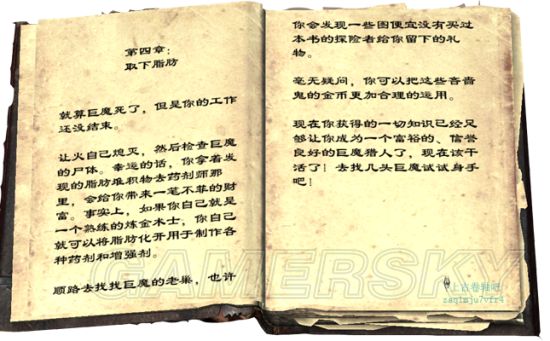 第四章：
取下脂肪
就算巨魔死了，但是你的工作
还没结束。
让火自己熄灭，然后检查巨魔
的尸体。幸运的话，你拿着发
现的脂肪堆积物去药剂师那
里，会给你带来一笔不菲的财
富。事实上，如果你自己就是
一个熟练的炼金术士，你自己
就可以将脂肪化开用于制作各
种药剂和增强剂。
顺路去找找巨魔的老巢，也许
你会发现一些图便宜没有买过
本书的探险者给你留下的礼
物。
毫无疑问，你可以把这些吝啬
鬼的金币更加合理的运用。
现在你获得的一切知识已经足
够让你成为一个富裕的、信誉
良好的巨魔猎人了，现在该干
活了！去找几头巨魔试试身手
吧！
GAMERSKY
上古卷轴吧
zaq1mju7vfr4